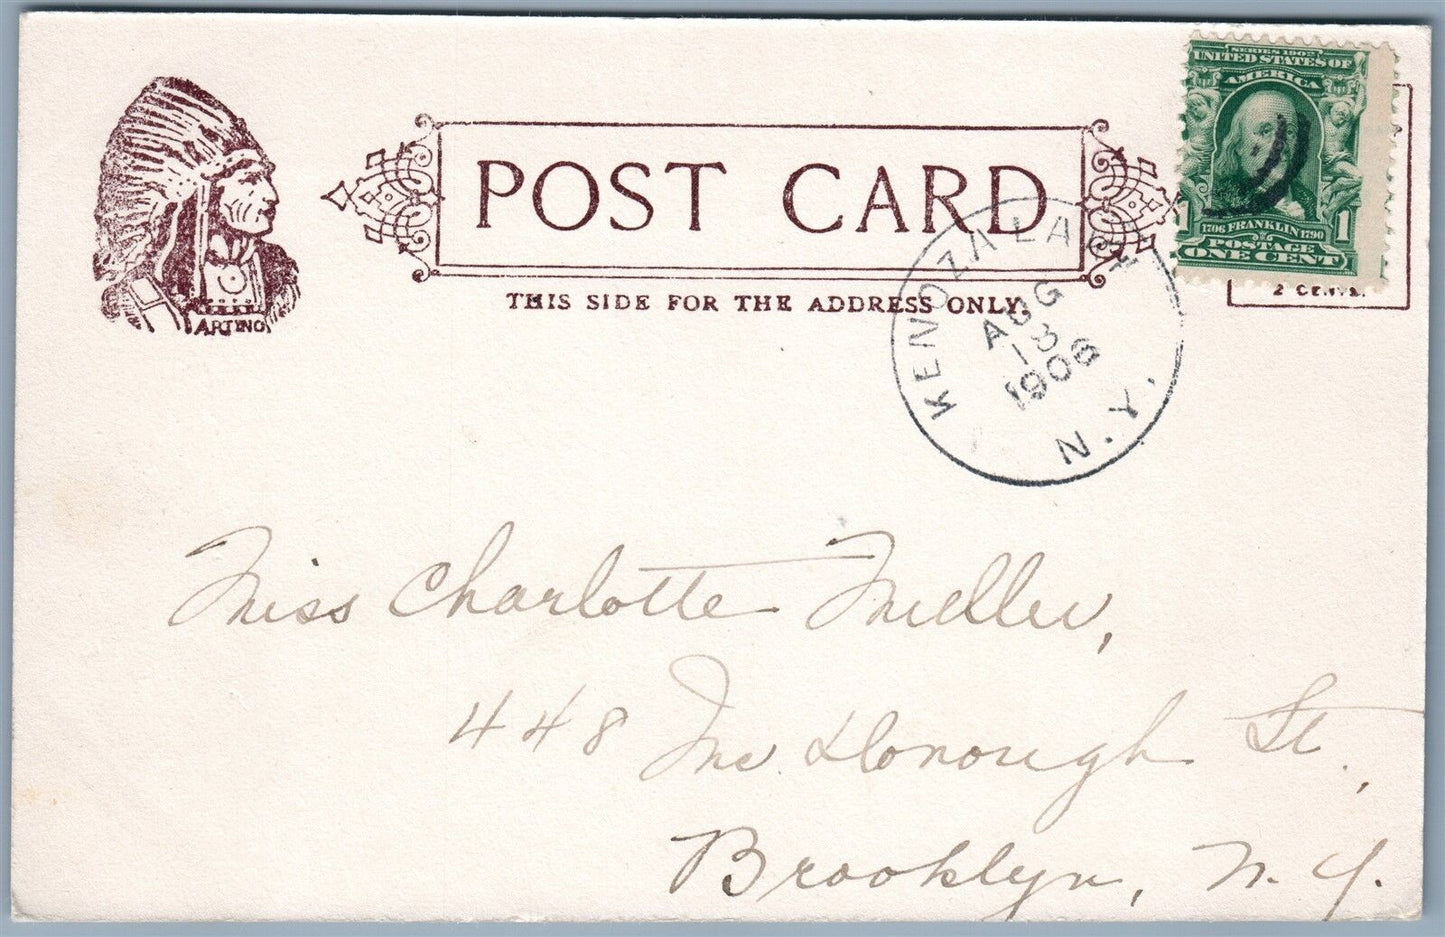 SERIES 1902
UNITED STATES OF
AMERICA
1706 FRANKLIN 1790
1 1
POSTAGE
ONE CENT
POST CARD
THIS SIDE FOR THE ADDRESS ONLY.
2 CENTS.
ARTINO
KENOZA LAKE
AUG
13
1906
N.Y.
Miss Charlotte Miller,
448 Mc Donough St.,
Brooklyn, N.Y.